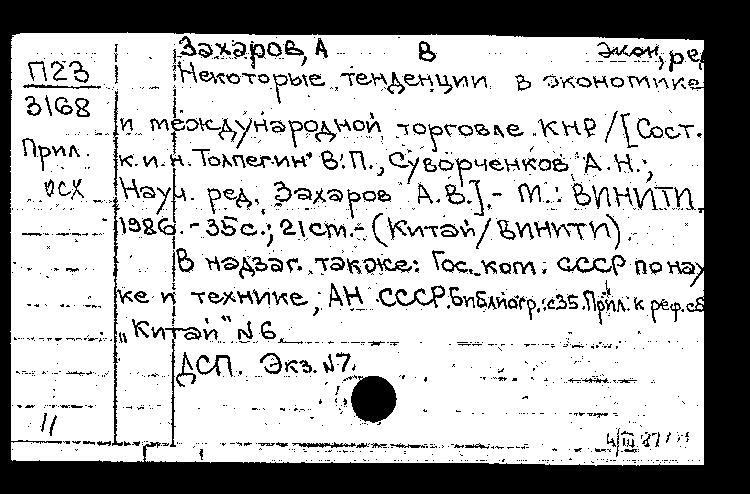 Захаров, А В экон, ред
П23
3168
Прил.
ОСХ
Некоторые тенденции в экономике
и международной торговле КНР / [Сост.
к.и.н. Толпегин В.П., Суворченков А.Н.;
Науч. ред. Захаров А.В.]. - М.: ВИНИТИ.
1986. - 35 с.; 21 см. - (Китай / ВИНИТИ).
В надзаг. также: Гос. ком. СССР по нау
ке и технике, АН СССР. Библиогр.: с 35. Прил. к реф. сб
„Китай" N 6.
ДСП. Экз. N7.
11
4/III 87